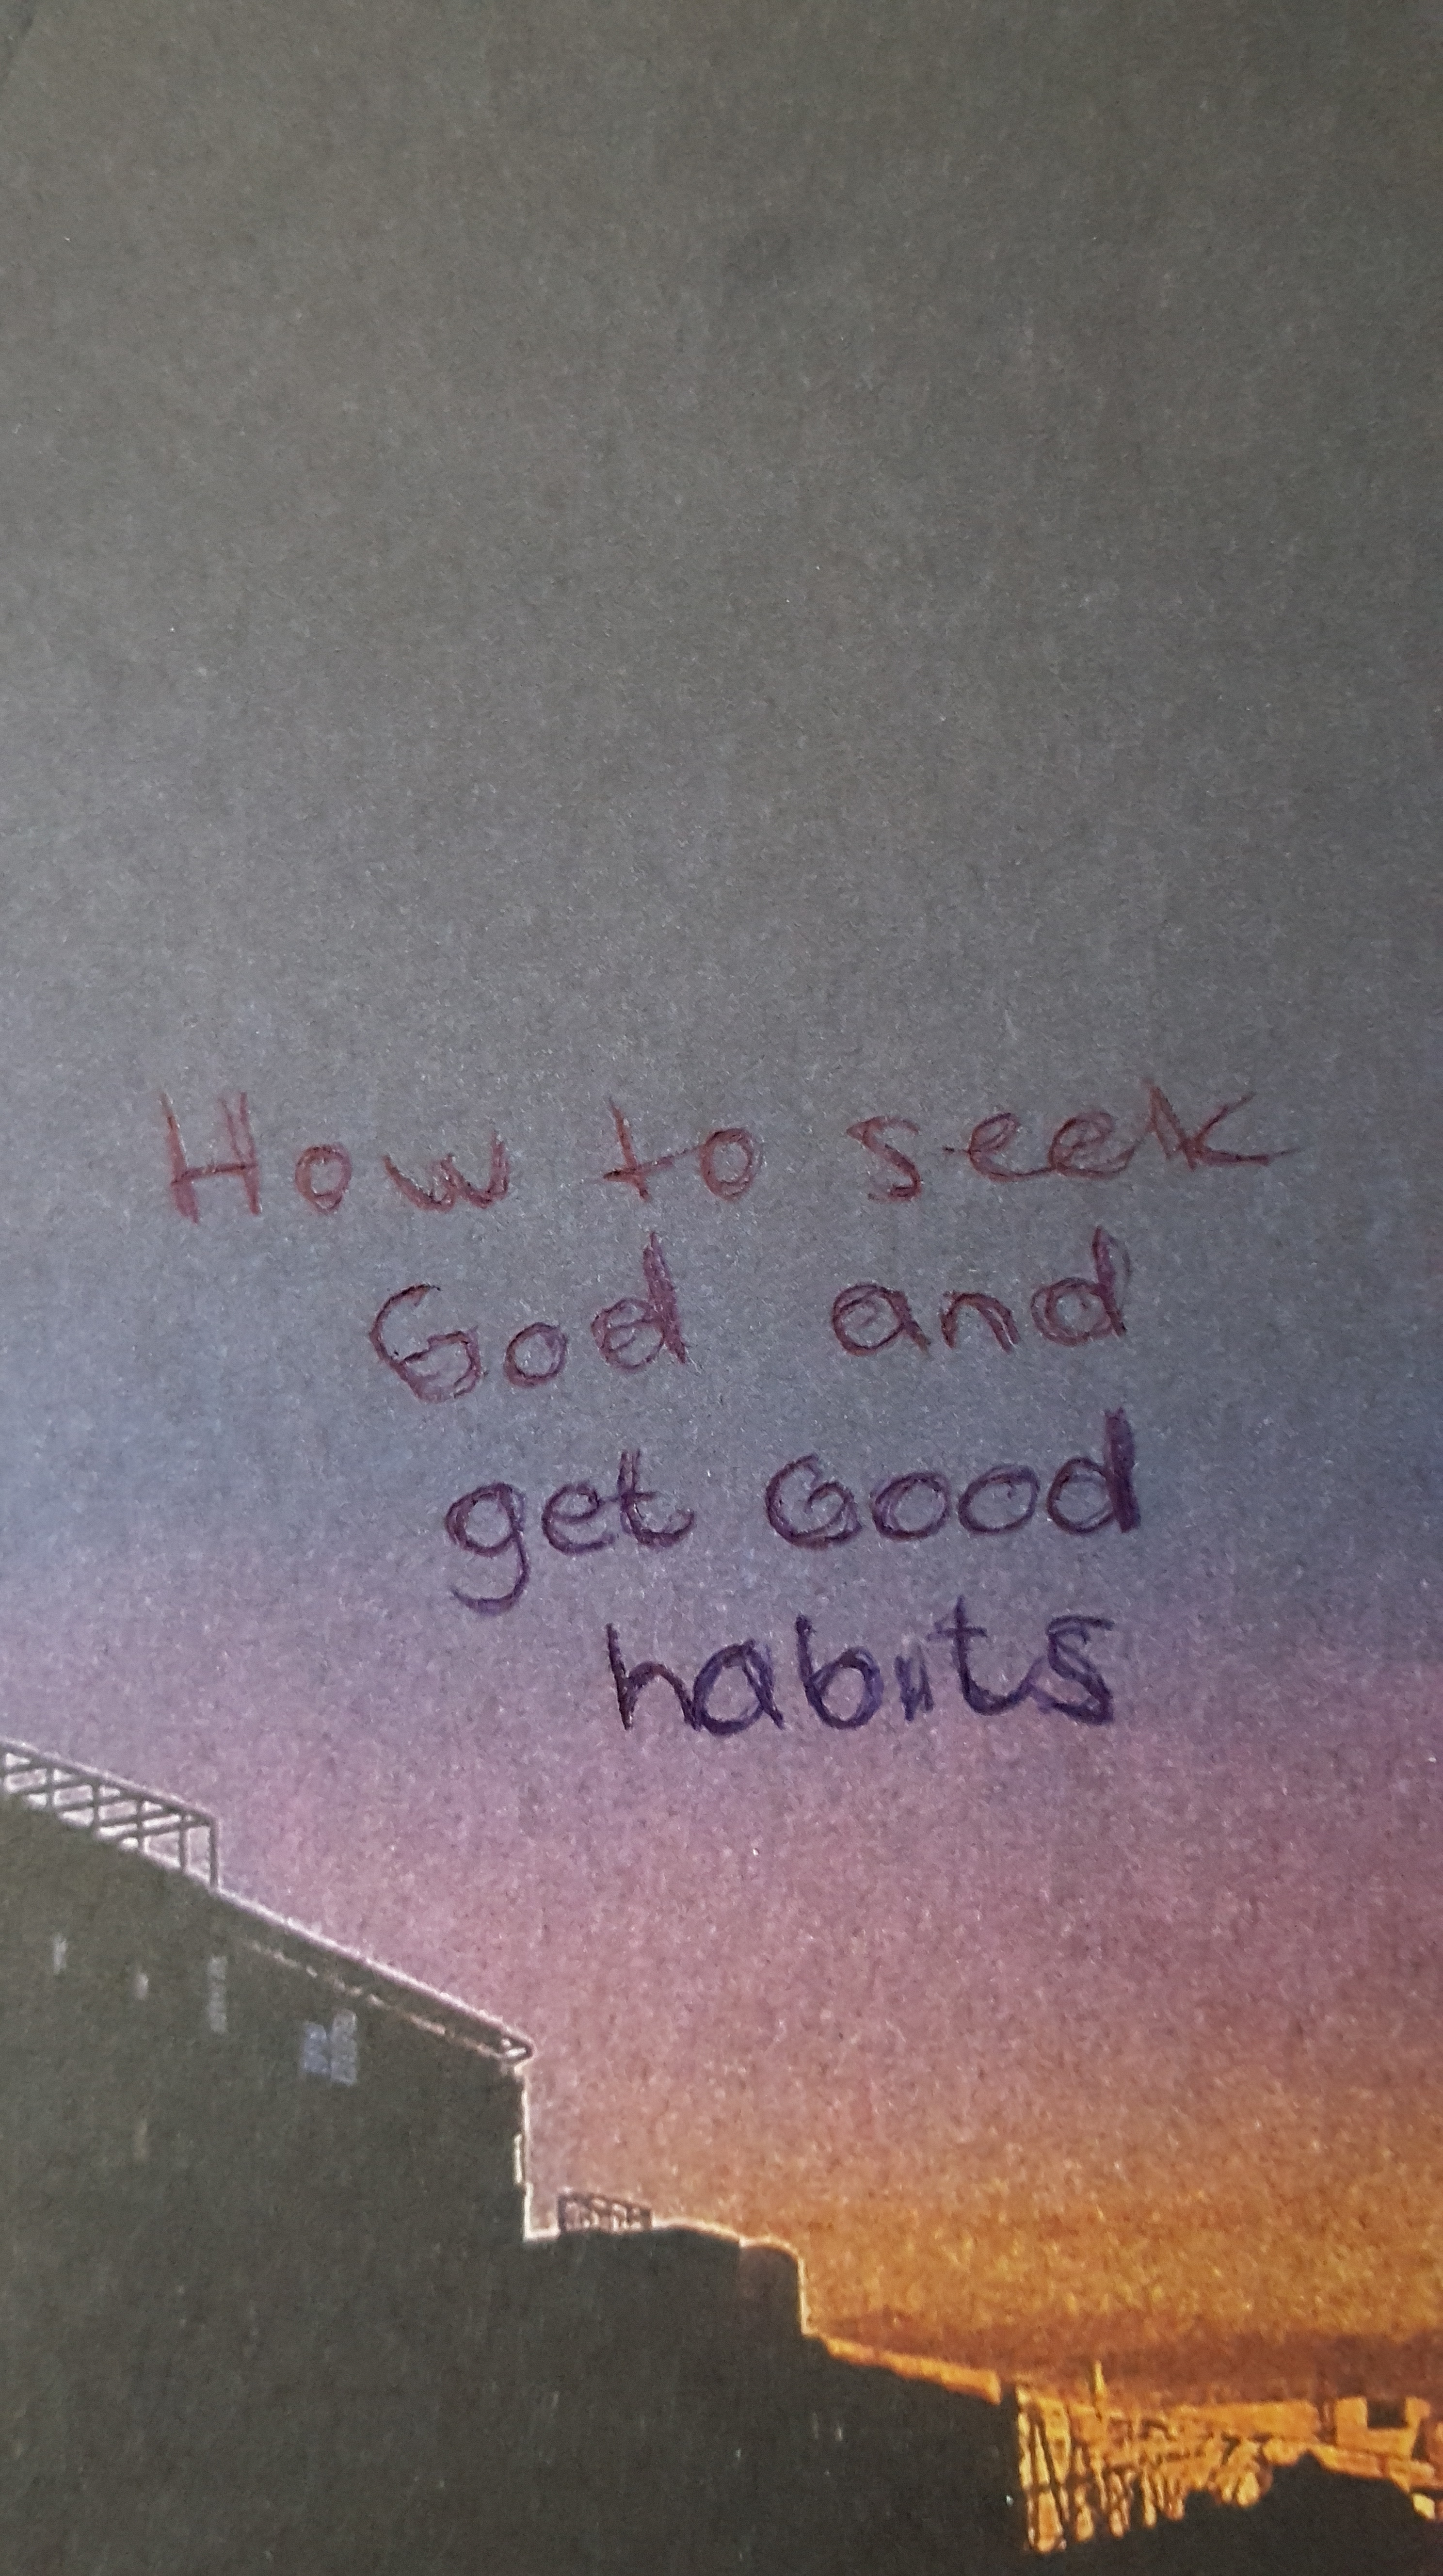 How to seek
God and
get Good
habits